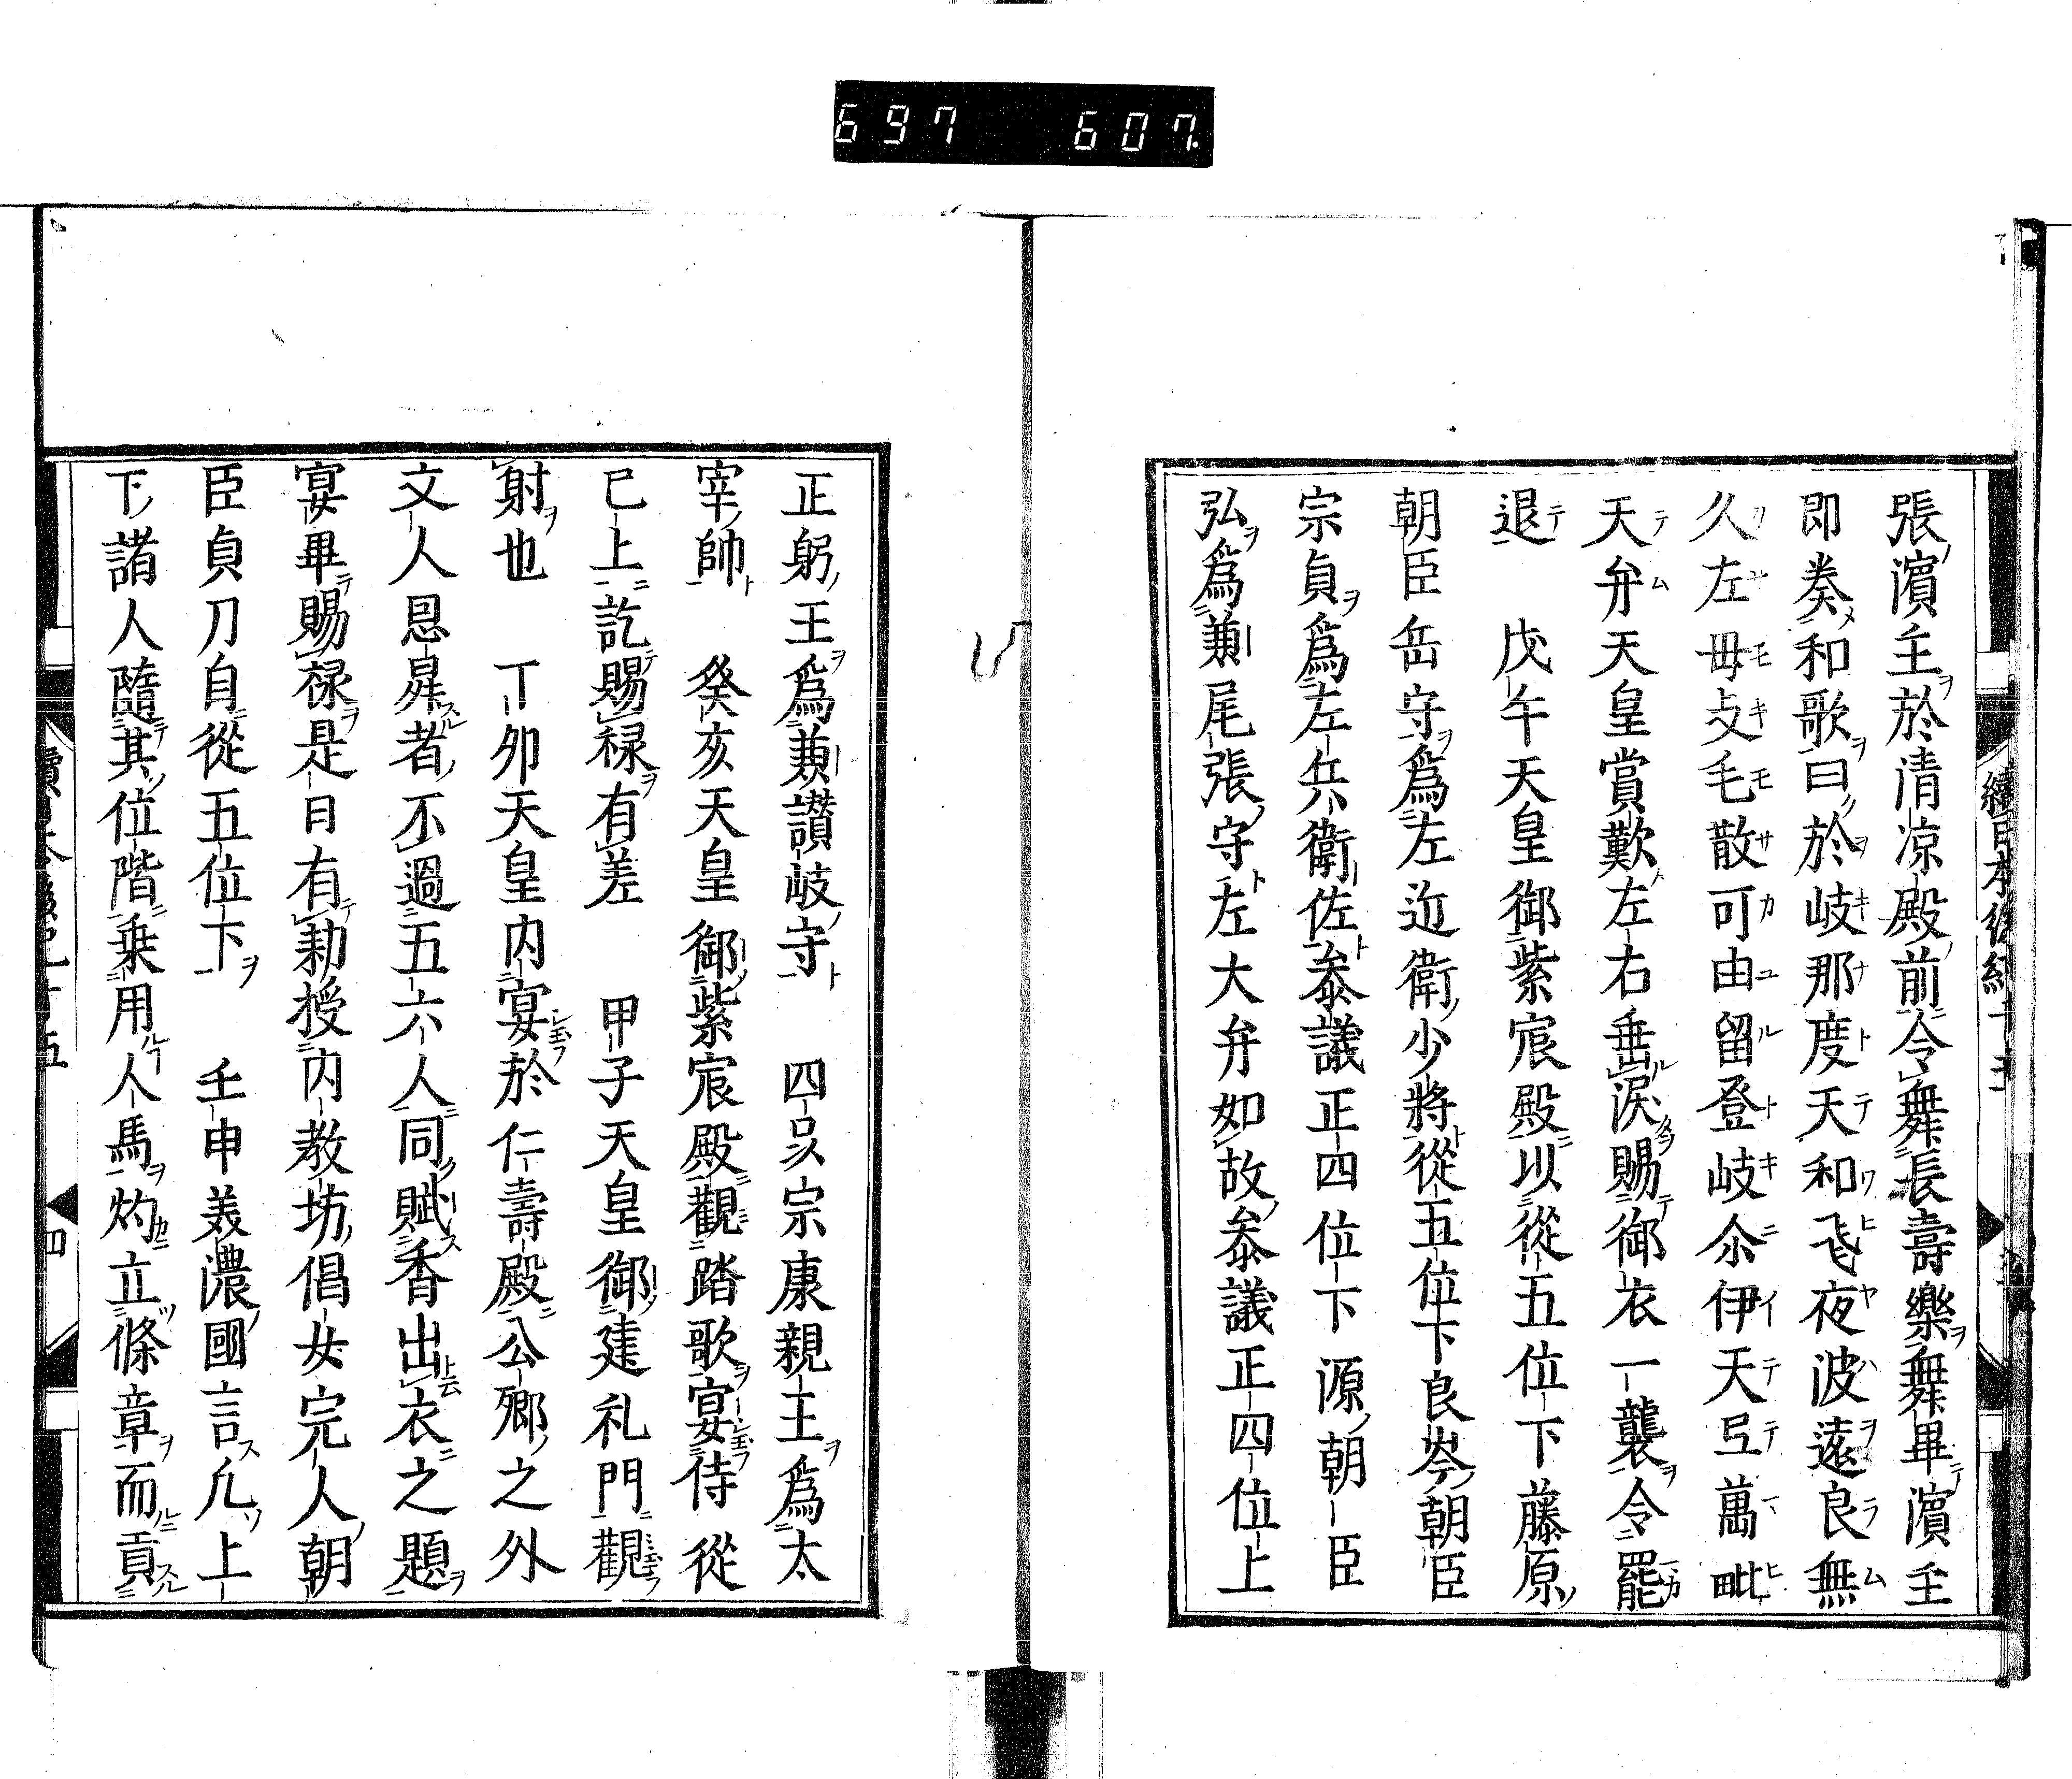 697 607.
張濱主於清凉殿前令舞長壽樂舞畢濱主
即奏和歌曰於岐那度天和飛夜波遠良無
久左母支毛散可由留登岐尒伊天弖萬毗
天牟天皇賞歎左右垂淚賜御衣一襲令罷
退　戊午天皇御紫宸殿以從五位下藤原
朝臣岳守爲左近衛少將從五位下良岑朝臣
宗貞爲左兵衛佐叅議正四位下源朝臣
弘爲兼尾張守左大弁如故叅議正四位上
正躬王爲兼讃岐守　四品宗康親王爲太
宰帥　癸亥天皇御紫宸殿觀踏歌宴侍從
已上訖賜禄有差　甲子天皇御建礼門觀
射也　丁夘天皇内宴於仁壽殿公卿之外
文人恩昇者不過五六人同賦香出衣之題
宴畢賜禄是日有勅授内教坊倡女完人朝
臣貞刀自從五位下　壬申美濃國言凡上
下諸人隨其位階乗用人馬灼立條章而貢